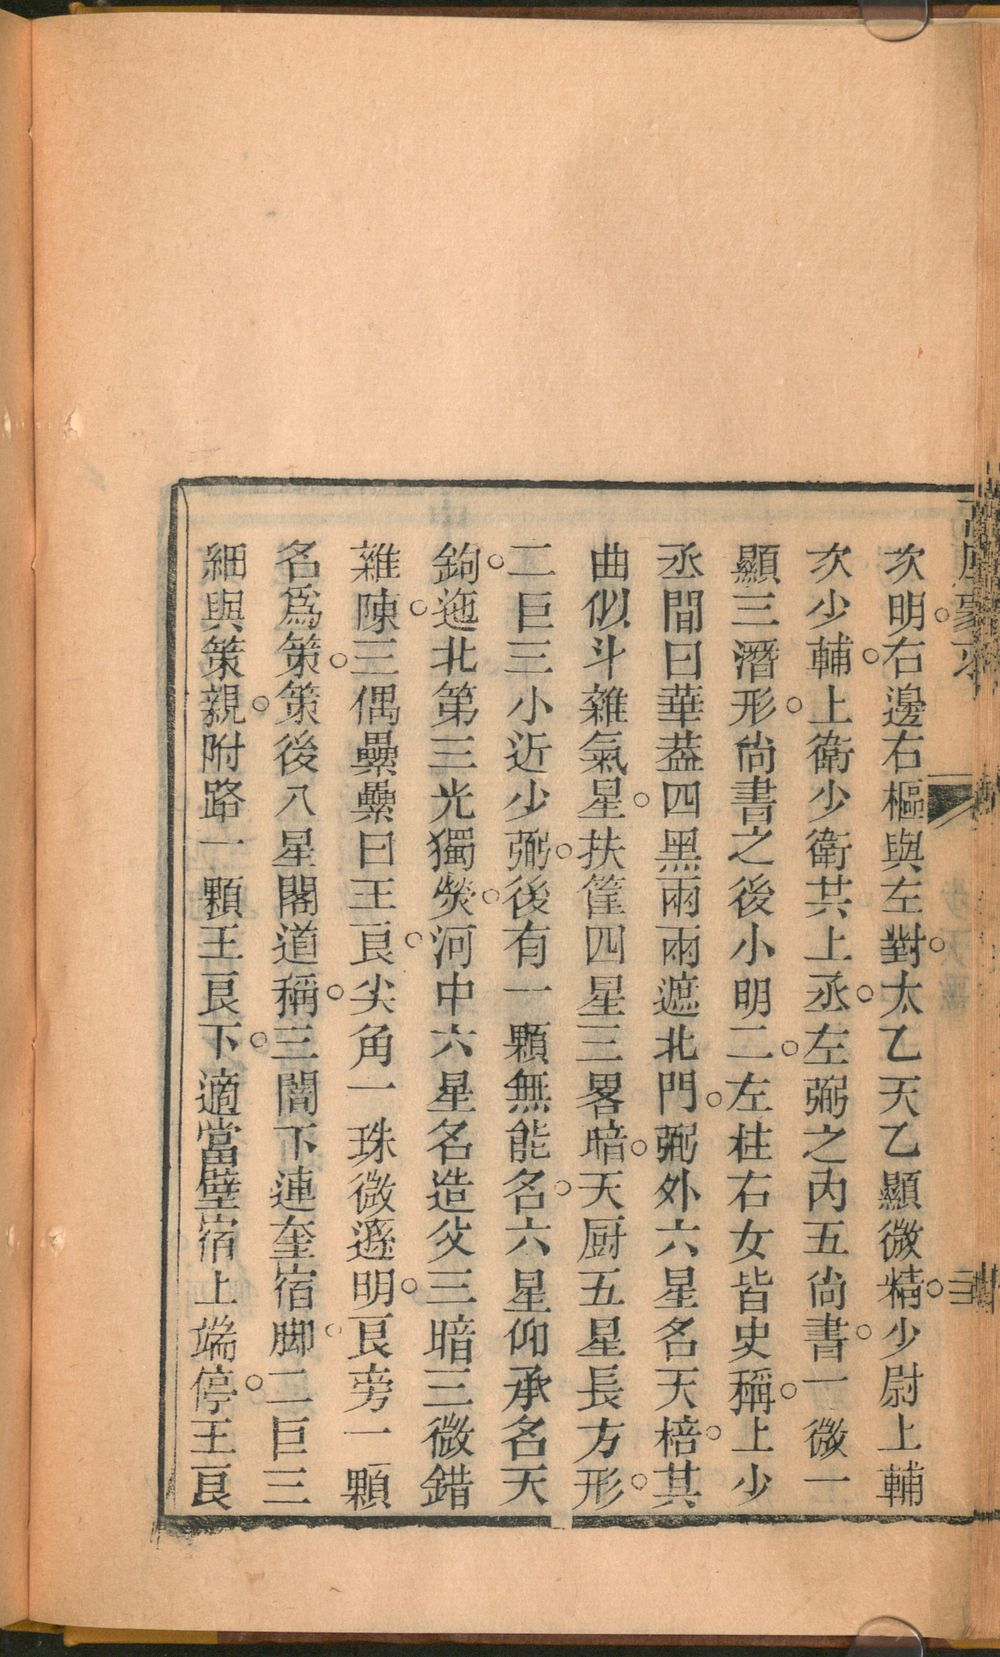 次明。右邊右樞與左對。太乙天乙顯微精。少尉上輔
次少輔。上衛少衛共上丞。左弼之內五尙書。一微一
顯三潛形。尙書之後小明二。左柱右女皆史稱。上少
丞間曰華葢四黑兩兩遮北門。弼外六星名天棓。其
曲似斗雜氣星。扶筐四星三畧暗。天厨五星長方形。
二巨三小近少弼。後有一顆無能名。六星仰承名天
鉤。迤北第三光獨熒。河中六星名造父三暗三微錯
雜陳。三偶纍纍曰王良。尖角一珠微遜明。良旁一顆
名爲策。策後八星閣道稱。三闇下連奎宿脚。二巨三
細與策親。附路一顆王良下。適當壁宿上端停。王良
三